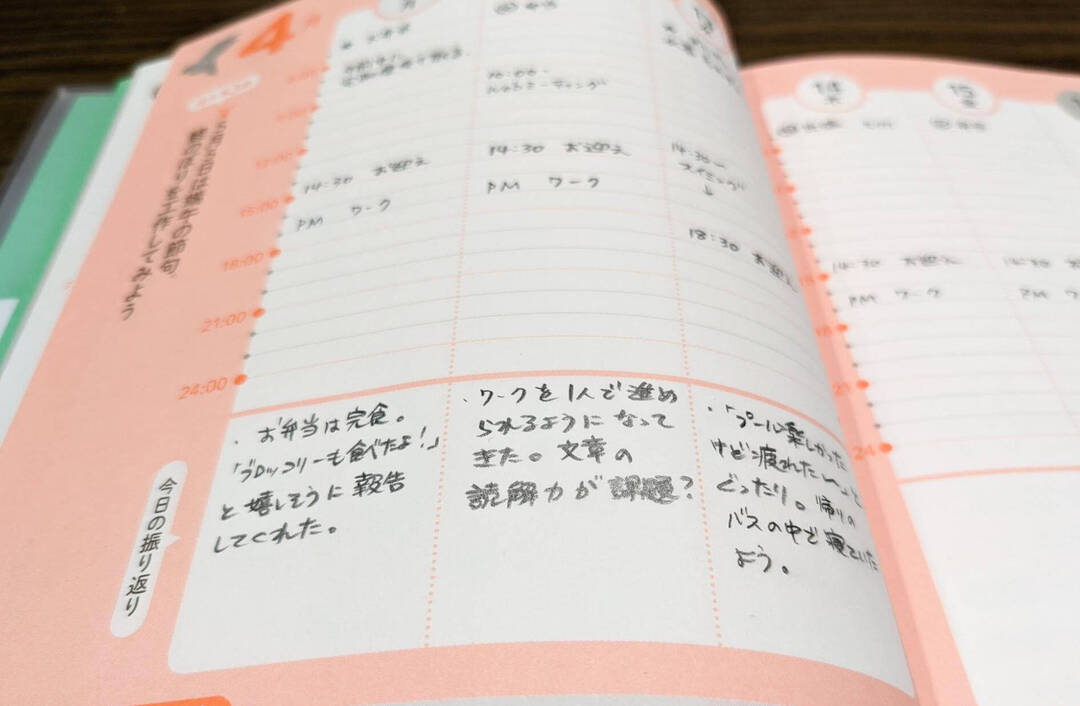 4月
5月5日は端午の節句。
鯉のぼりを工作してみよう
15:00
18:00
21:00
24:00
14:30 お迎え
PM ワーク
10:00-
14:30 お迎え
PM ワーク
14:30-
スイミング
↓
18:30 お迎え
今日の振り返り
・お弁当は完食。
「ブロッコリーも食べたよ!」
と嬉しそうに報告
してくれた。
・ワークを1人で進め
られるようになって
きた。文章の
読解力が課題?
・「プール楽しかった
けど疲れた〜」と
ぐったり。帰りの
バスの中で寝ていた
よう。
14
木
15
金
14:30 お迎え
PM ワーク
14:30 お迎え
PM ワーク
18
21
24